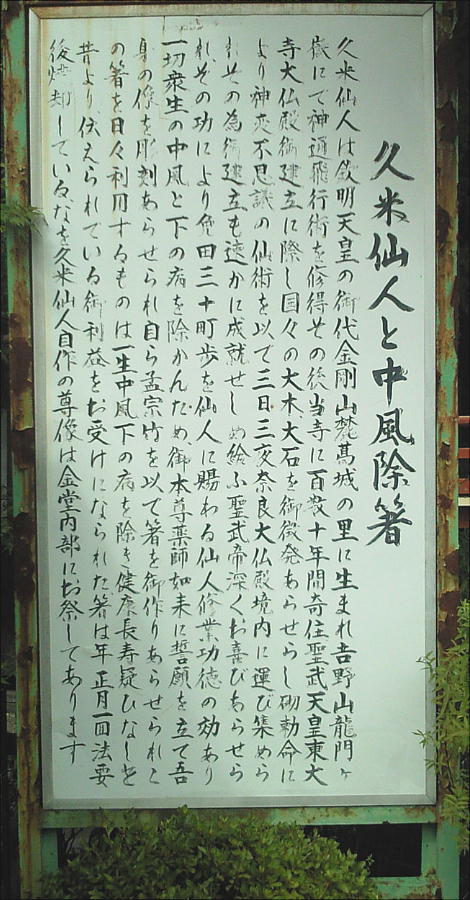 久米仙人と中風除箸
久米仙人は欽明天皇の御代金剛山麓葛城の里に生まれ吉野山龍門ヶ
嶽にて神通飛行術を修得その後当寺に百数十年間寄住聖武天皇東大
寺大仏殿御建立に際し国々の大木大石を御徴発あらせらし砌勅命に
より神変不思議の仙術を以て三日三夜奈良大仏殿境内に運び集めら
れその為御建立も速かに成就せしめ給ふ聖武帝深くお喜びあらせら
れその功により免田三十町歩を仙人に賜わる仙人修業功徳の効あり
一切衆生の中風と下の病を除かんため御本尊薬師如来に誓願を立て吾
身の像を彫刻あらせられ自ら孟宗竹を以て箸を御作りあらせられこ
の箸を日々利用するものは一生中風下の病を除き健康長寿疑ひなしと
昔より伝えられている御利益をお受けになられた箸は年正月一回法要
後焼却しているなを久米仙人自作の尊像は金堂内部にお祭してあります